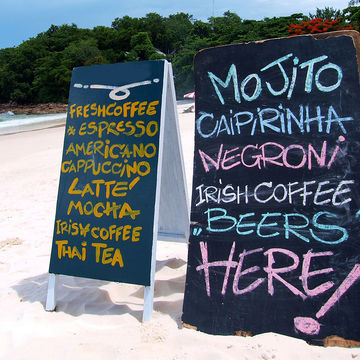 FRESH COFFEE
& ESPRESSO
AMERICANO
CAPPUCCINO
LATTE'
MOCHA
IRISH COFFEE
THAI TEA
MOJITO
CAIPIRINHA
NEGRONI
IRISH-COFFEE
BEERS
HERE!